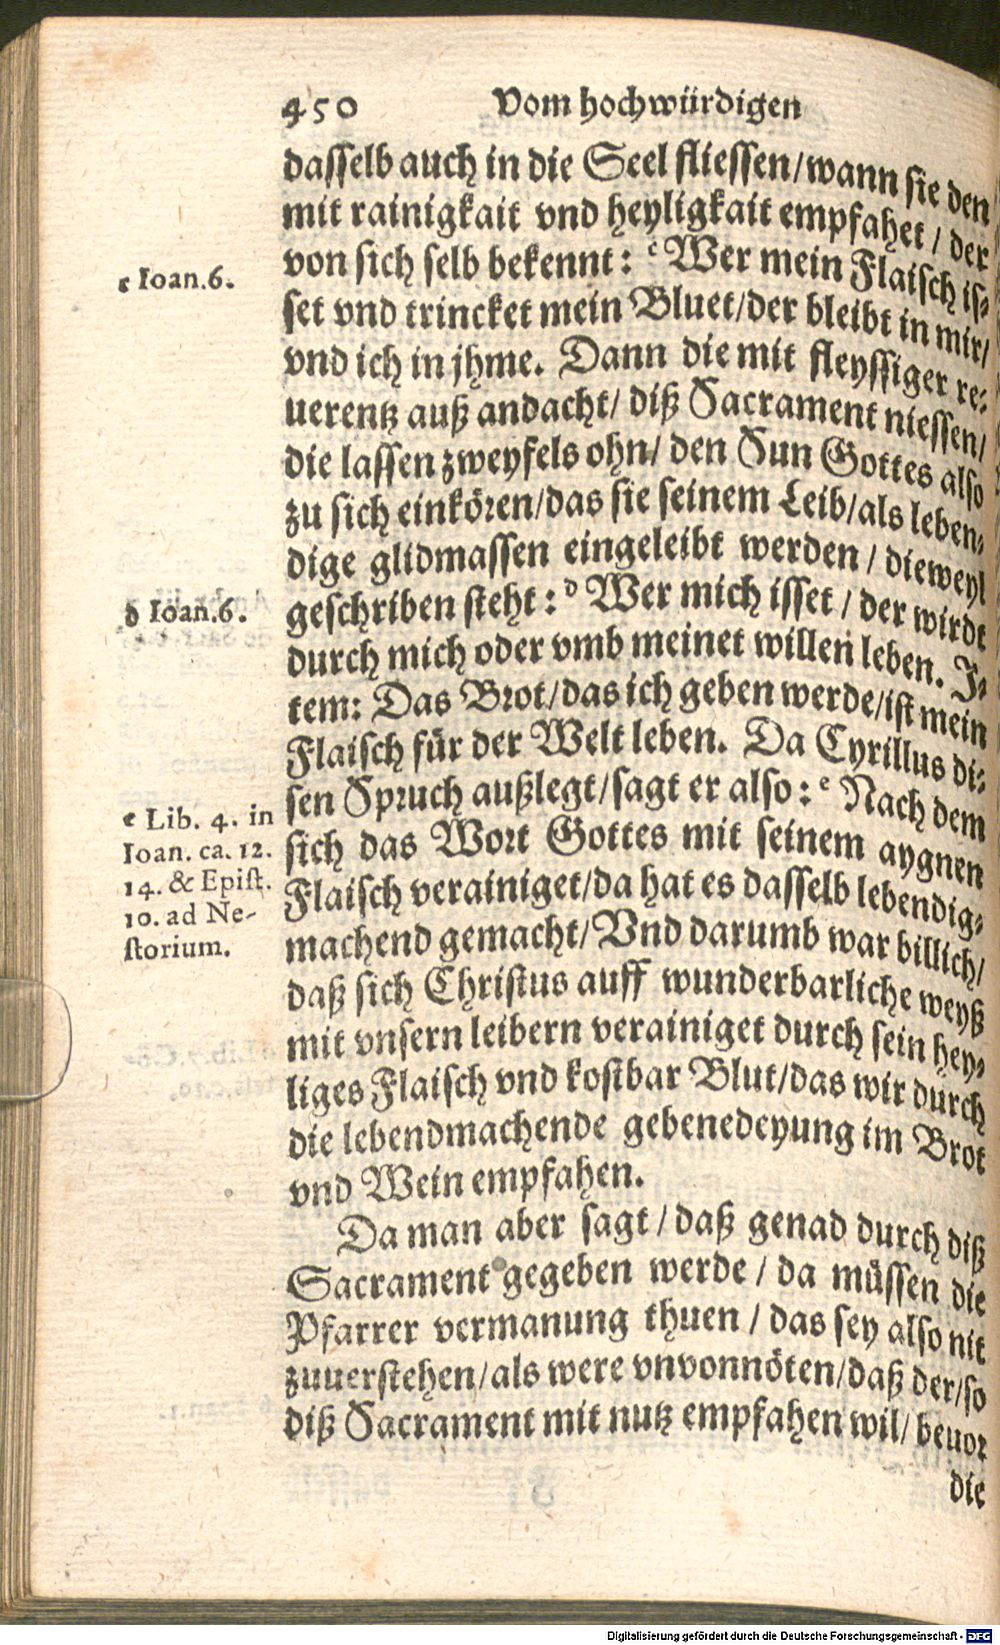 450 Vom hochwürdigen
dasselb auch in die Seel fliessen/wann sie den
mit rainigkait vnd heyligkait empfahet / der
von sich selb bekennt: c Wer mein Flaisch is-
c Ioan.6.
set vnd trincket mein Bluet/der bleibt in mir/
vnd ich in jhme. Dann die mit fleyssiger re-
uerentz auß andacht/ diß Sacrament niessen/
die lassen zweyfels ohn/ den Sun Gottes also
zu sich einkören/das sie seinem Leib/als leben-
dige glidmassen eingeleibt werden / dieweyl
geschriben steht: d Wer mich isset / der wirdt
d Ioan.6.
durch mich oder vmb meinet willen leben. I-
tem: Das Brot/das ich geben werde/ist mein
Flaisch für der Welt leben. Da Cyrillus di-
sen Spruch außlegt/sagt er also: e Nach dem
e Lib. 4. in
Ioan. ca. 12.
14. & Epist.
10. ad Ne-
storium.
sich das Wort Gottes mit seinem aygnen
Flaisch verainiget/da hat es dasselb lebendig-
machend gemacht/Vnd darumb war billich/
daß sich Christus auff wunderbarliche weyß
mit vnsern leibern verainiget durch sein hey-
liges Flaisch vnd kostbar Blut/das wir durch
die lebendmachende gebenedeyung im Brot
vnd Wein empfahen.
Da man aber sagt / daß genad durch diß
Sacrament gegeben werde / da müssen die
Pfarrer vermanung thuen / das sey also nit
zuuerstehen/als were vnvonnöten/daß der/so
diß Sacrament mit nutz empfahen wil/ beuor
die
Digitalisierung gefördert durch die Deutsche Forschungsgemeinschaft - DFG